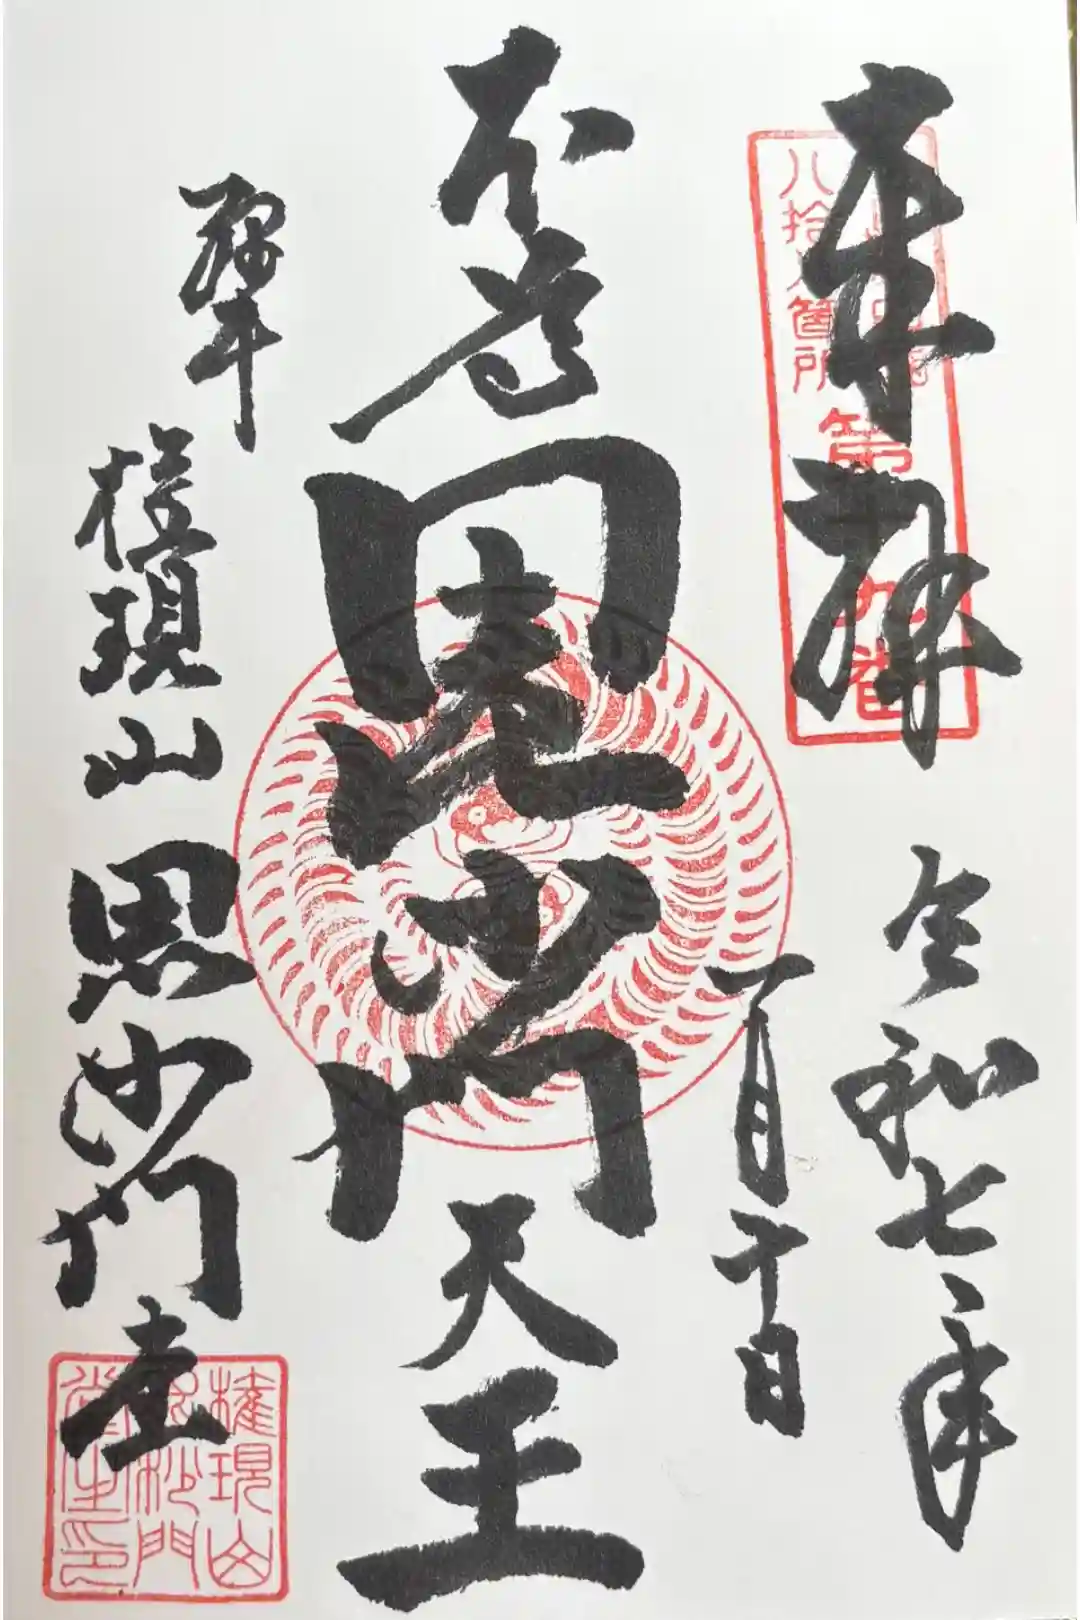 奉拝
令和七年
一月十日
本尊
毘沙門
天王
聖
権現山
毘沙門堂
八拾八箇所
第十九番
権現山
毘沙門
堂之印